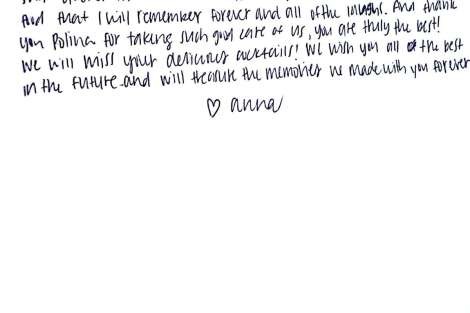 And that I will remember forever and all of the laughs. And thank
you Polina for taking such good care of us, you are truly the best!
We will miss your delicious cocktails! We wish you all of the best
in the future and will treasure the memories we made with you forever
♡ anna